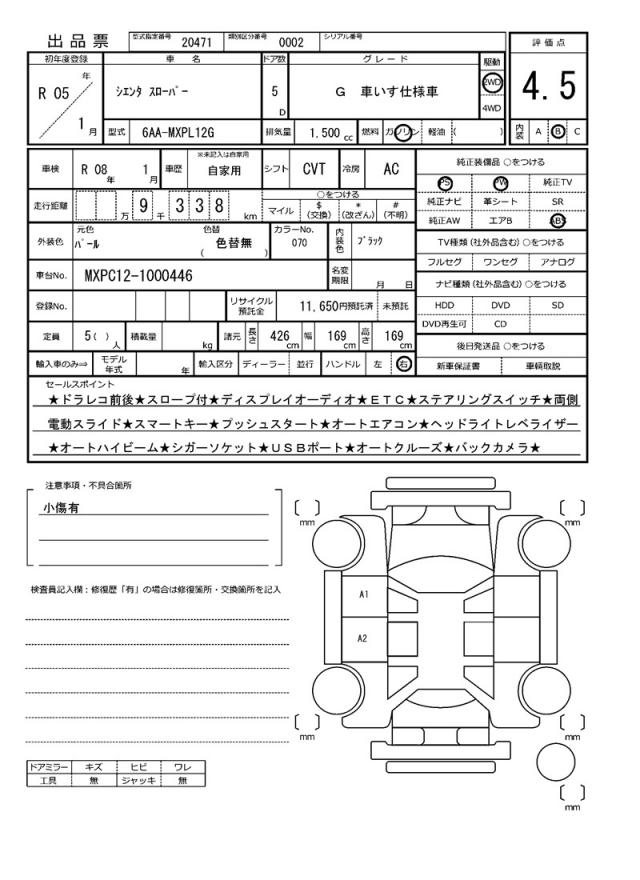 出品票 型式指定番号 20471 類別区分番号 0002 シリアル番号
評価点
4.5
初年度登録 車名 ドア数 グレード 駆動
R 05 年 1 月
シエンタ スローパー 5 D G 車いす仕様車 2WD 4WD
型式 6AA-MXPL12G 排気量 1.500 cc 燃料 ガソリン 軽油 ( )
内装 A B C
車検 R 08 年 1 月 車歴 ※未記入は自家用 自家用 シフト CVT 冷房 AC
走行距離 万 9 千 3 3 8 km
○をつける
マイル $ (交換) * (改ざん) # (不明)
外装色 元色 パール 色替 色替無 ( ) カラーNo. 070 内装色 ブラック
車台No. MXPC12-1000446 名変期限 月 日
登録No. リサイクル預託金 11,650円預託済 未預託
定員 5( ) 人 積載量 kg 諸元 長さ 426 cm 幅 169 cm 高さ 169 cm
輸入車のみ⇒ モデル年式 年 輸入区分 ディーラー 並行 ハンドル 左 右
純正装備品 ○をつける
PS PW 純正TV
純正ナビ 革シート SR
純正AW エアB ABS
TV種類(社外品含む)○をつける
フルセグ ワンセグ アナログ
ナビ種類(社外品含む)○をつける
HDD DVD SD
DVD再生可 CD
後日発送品 ○をつける
新車保証書 車輌取説
セールスポイント
★ドラレコ前後★スロープ付★ディスプレイオーディオ★ETC★ステアリングスイッチ★両側
電動スライド★スマートキー★プッシュスタート★オートエアコン★ヘッドライトレベライザー
★オートハイビーム★シガーソケット★USBポート★オートクルーズ★バックカメラ★
注意事項・不具合箇所
小傷有
検査員記入欄:修復歴「有」の場合は修復箇所・交換箇所を記入
ドアミラー キズ ヒビ ワレ
工具 無 ジャッキ 無
mm mm
A1
A2
mm mm
mm